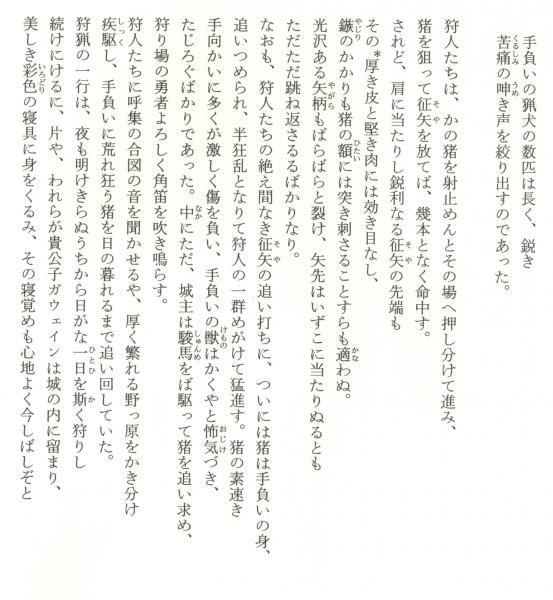 手負いの猟犬の数匹は長く、鋭き
苦痛の呻き声を絞り出すのであった。
狩人たちは、かの猪を射止めんとその場へ押し分けて進み、
猪を狙って征矢を放てば、幾本となく命中す。
されど、肩に当たりし鋭利なる征矢の先端も
その*厚き皮と堅き肉には効き目なし、
鏃のかかりも猪の額には突き刺さることすらも適わぬ。
光沢ある矢柄もばらばらと裂け、矢先はいずこに当たりぬるとも
ただただ跳ね返さるるばかりなり。
なおも、狩人たちの絶え間なき征矢の追い打ちに、ついには猪は手負いの身、
追いつめられ、半狂乱となりて狩人の一群めがけて猛進す。猪の素速き
手向かいに多くが激しく傷を負い、手負いの獣はかくやと怖気づき、
たじろぐばかりであった。中にただ、城主は駿馬をば駆って猪を追い求め、
狩り場の勇者よろしく角笛を吹き鳴らす。
狩人たちに呼集の合図の音を聞かせるや、厚く繁れる野っ原をかき分け
疾駆し、手負いに荒れ狂う猪を日の暮れるまで追い回していた。
狩猟の一行は、夜も明けきらぬうちから日がな一日を斯く狩りし
続けにけるに、片や、われらが貴公子ガウェインは城の内に留まり、
美しき彩色の寝具に身をくるみ、その寝覚めも心地よく今しばしぞと